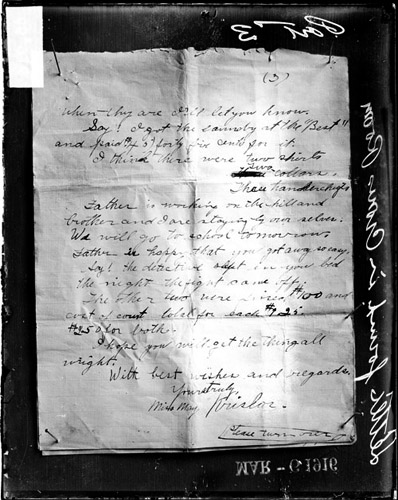 (3)
When they are I'll let you know.
Say! I got the laundry at the "Best"
and paid
forty six cents for it.
I think there were two shirts
two collars.
Three handerchiefs
Father is working on the hill and
brother and I are staying by our selves.
We will go to school tomorrow.
Father is happy that you got away so easy.
Say! the detective slept in your bed
the night the fight came off.
The other two were fined $100 and
cost of court total for each $125
$250 for both.
I hope you will get the thing all
wright.
With best wishes and regards,
Yours truly,
Miss May
Please turn over
MAR - 6 1916
Letter found in Crones Room